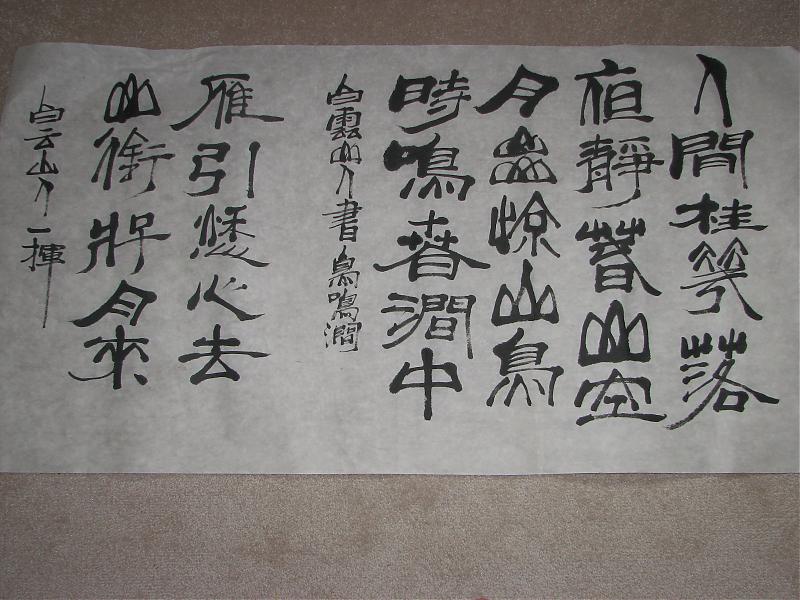 人間桂花落
夜靜春山空
月出惊山鳥
時鳴春澗中
白雲山人書鳥鳴澗
雁引愁心去
山銜好月來
白云山人一揮